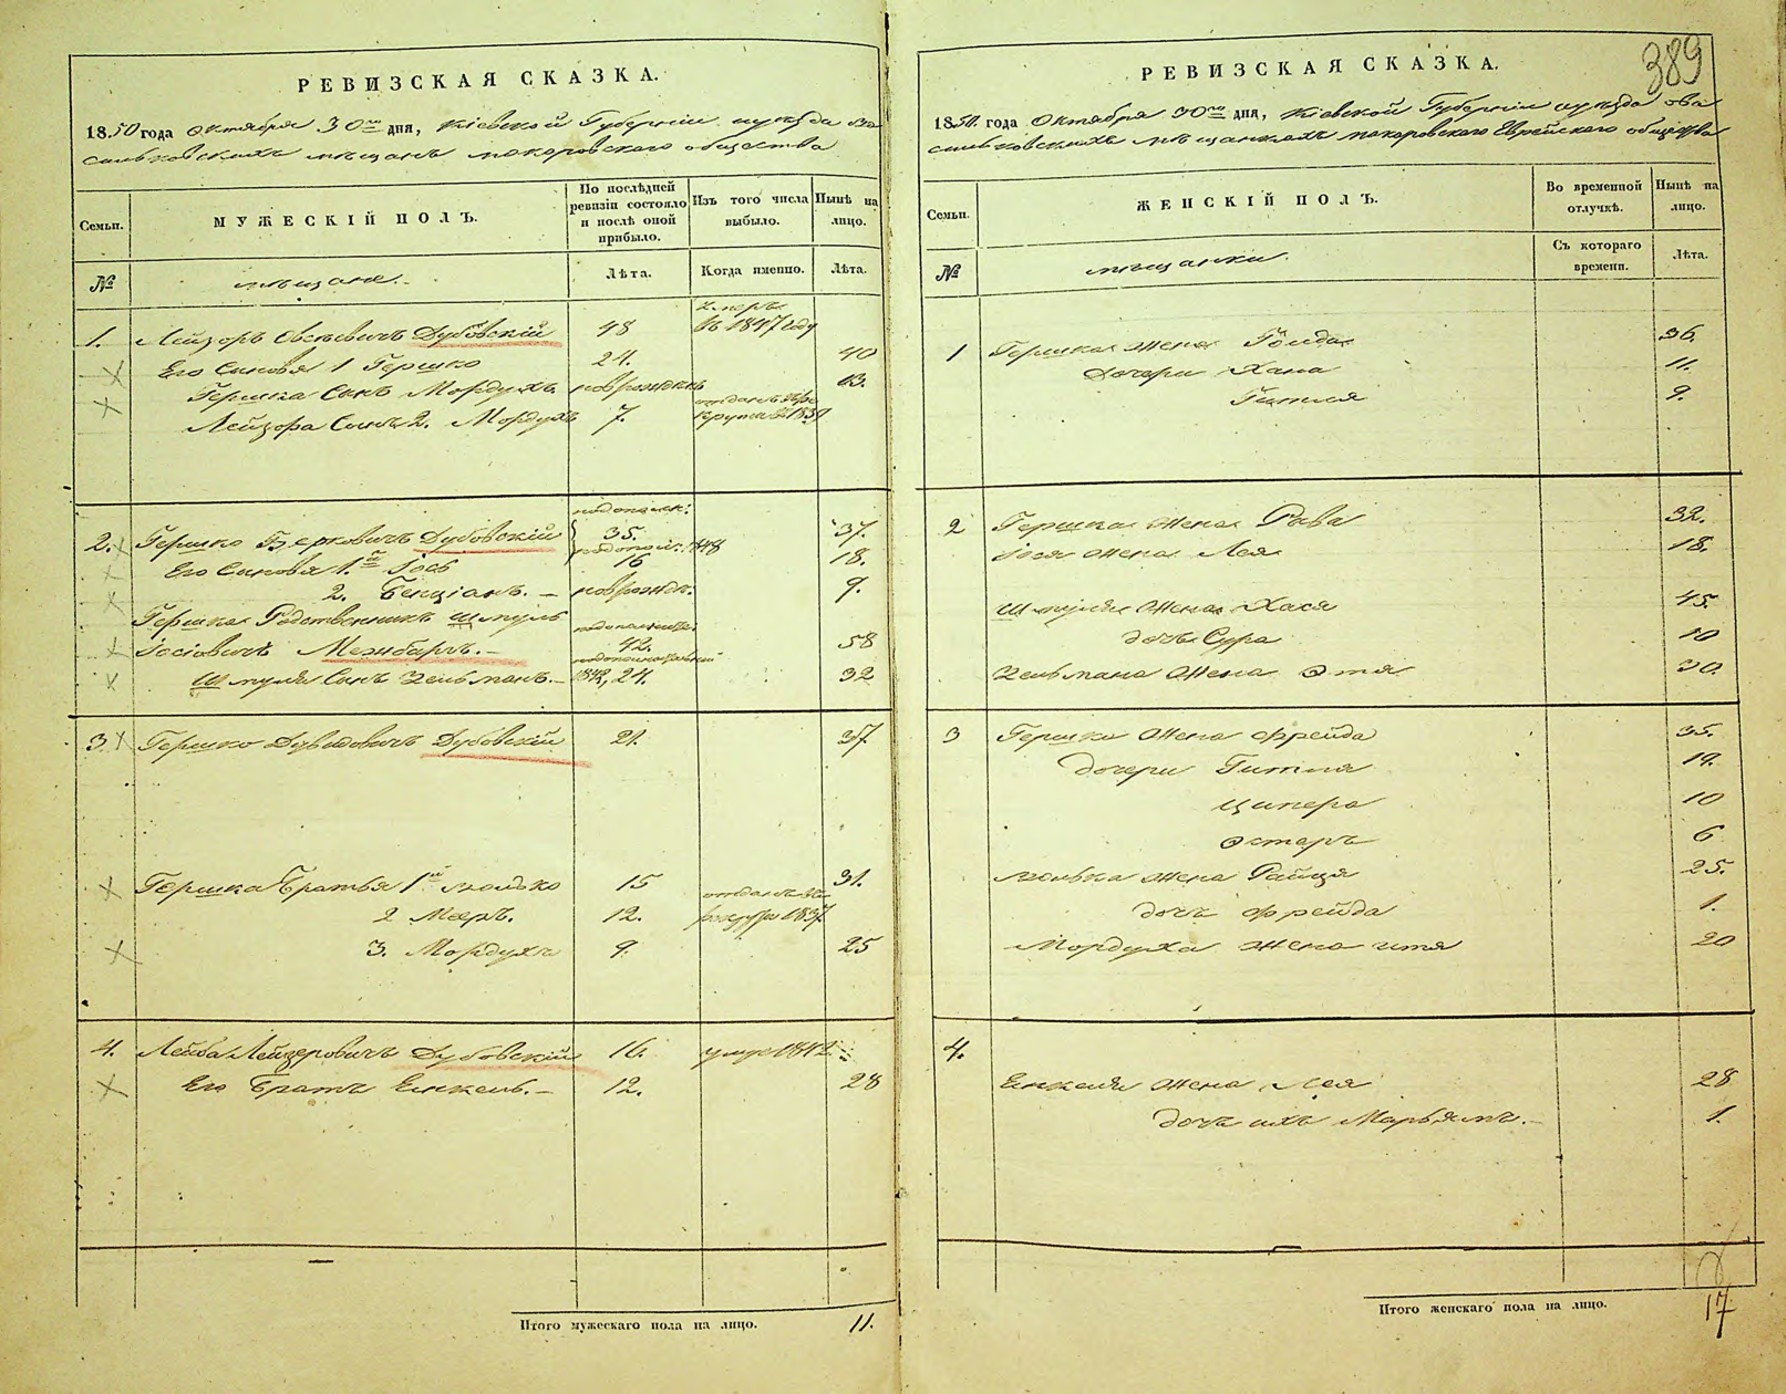 РЕВИЗСКАЯ СКАЗКА.
1850 года Октября 30го дня, Кіевской Губерніи и уѣзда Ва
сильковскихъ мѣщанъ макаровскаго общества
Семьи.
МУЖЕСКІЙ ПОЛЪ.
По послѣдней ревизіи состояло и послѣ оной прибыло.
Изъ того числа выбыло.
Нынѣ на лицо.
№
мѣщане.
Лѣта.
Когда именно.
Лѣта.
1. Лейзоръ Овсѣевичъ Дубовскій 48 умеръ въ 1847 году
Его Сыновья 1 Гершко 24. 40
Гершка Сынъ Мордухъ новрожденъ 13.
Лейзора Сынъ 2. Мордухъ 7. отданъ въ рекруты въ 1839
2. Гершко Берковичъ Дубовскій 35. 37.
Его Сыновья 1й Іось 16 18.
2. Бенціанъ. новрожден: 9.
Гершка Родственникъ Шмуль
Іосіовичъ Межибаръ. 42. 58
Шмуля Сынъ Зельманъ. 24. 32
3 Гершко Дувидовичъ Дубовскій 21. 37.
Гершка Братья 1й Молдко 15 31.
2 Мееръ. 12. отданъ въ рекруты 1837.
3. Мордухъ 9. 25
4. Лейба Лейзеровичъ Дубовскій 16. умер 1842
Его Братъ Енкель. 12. 28
Итого мужескаго пола на лицо. 11.
389
РЕВИЗСКАЯ СКАЗКА.
1850. года Октября 30го дня, Кіевской Губерніи и уѣзда о ва
сильковскихъ мѣщанкахъ макаровскаго Еврейскаго общества
Семьи.
ЖЕНСКІЙ ПОЛЪ.
Во временной отлучкѣ.
Нынѣ на лицо.
№
мѣщанки.
Съ котораго времени.
Лѣта.
1 Гершка жена Голда 36.
дочери Хана 11.
Гитля 9.
2 Гершка жена Рава 32.
Іося жена Лея 18.
Шмуля жена Хася 45.
дочь Сура 10
Зельмана жена Этя 30.
3 Гершки жена Фрейда 35.
дочери Гитля 19.
Ципера 10
Эстеръ 6
Молька жена Райця 25.
дочь Фрейда 1.
Мордуха жена Итя 20
4. Енкеля жена Лея 28
дочь ихъ Марьямъ. 1.
Итого женскаго пола на лицо. 17